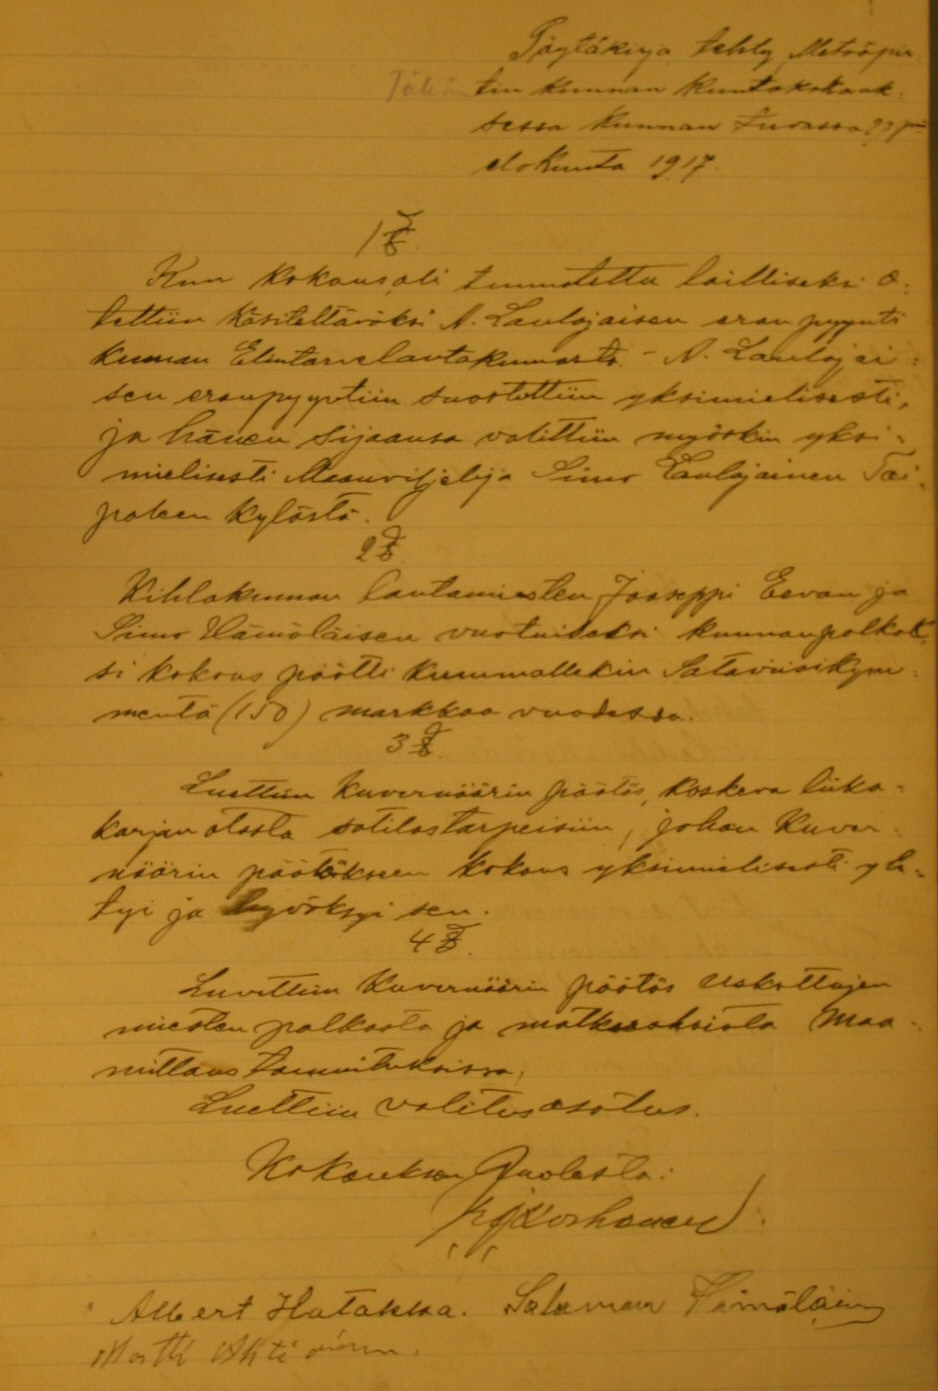 Pöytäkirja tehty Metsäpir-
tin kunnan kuntakokouk-
sessa kunnan tuvassa 27 p:nä
elokuuta 1917.
1 §.
Kun kokous oli tunnustettu lailliseksi o-
tettiin käsiteltäväksi A. Laulajaisen eron pyyntö
kunnan Elintarvelautakunnasta - A. Laulajai-
sen eronpyyntiin suostuttiin yksimielisesti,
ja hänen sijaansa valittiin myöskin yksi-
mielisesti Maanviljelijä Simo Laulajainen Tai-
paleen kylästä.
2 §.
Kihlakunnan lautamiesten Jooseppi Eevan ja
Simo Hämäläisen vuotuiseksi kunnanpalkak-
si kokous päätti kummallekin Sataviisikym-
mentä (150) markkaa vuodessa.
3 §.
Luettiin Kuvernöörin päätös, koskeva liika-
karjan otosta sotilastarpeisiin, johon Kuver-
nöörin päätökseen kokous yksimielisesti yh-
tyi ja hyväksyi sen.
4 §.
Luvettiin Kuvernöörin päätös Uskottujen
miesten palkasta ja matkarahoista Maa-
mittaus toimituksissa,
Luettiin valitusosotus.
Kokouksen Puolesta:
K J Korhonen.
Albert Hatakka. Salomon Hämäläinen
Matti Ahtiainen.